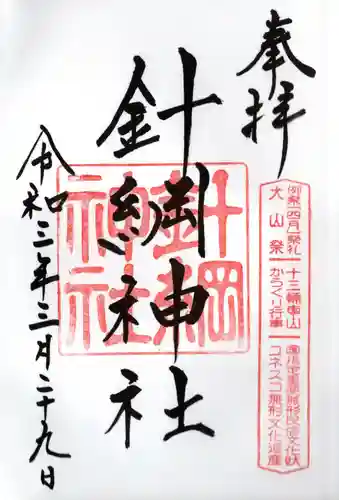 奉拝
針綱神社
針綱
神社
令和三年三月二十九日
例祭(四月)祭礼
大山祭
十三輛車山
からくり行事
無形民俗文化
ユネスコ無形文化遺産